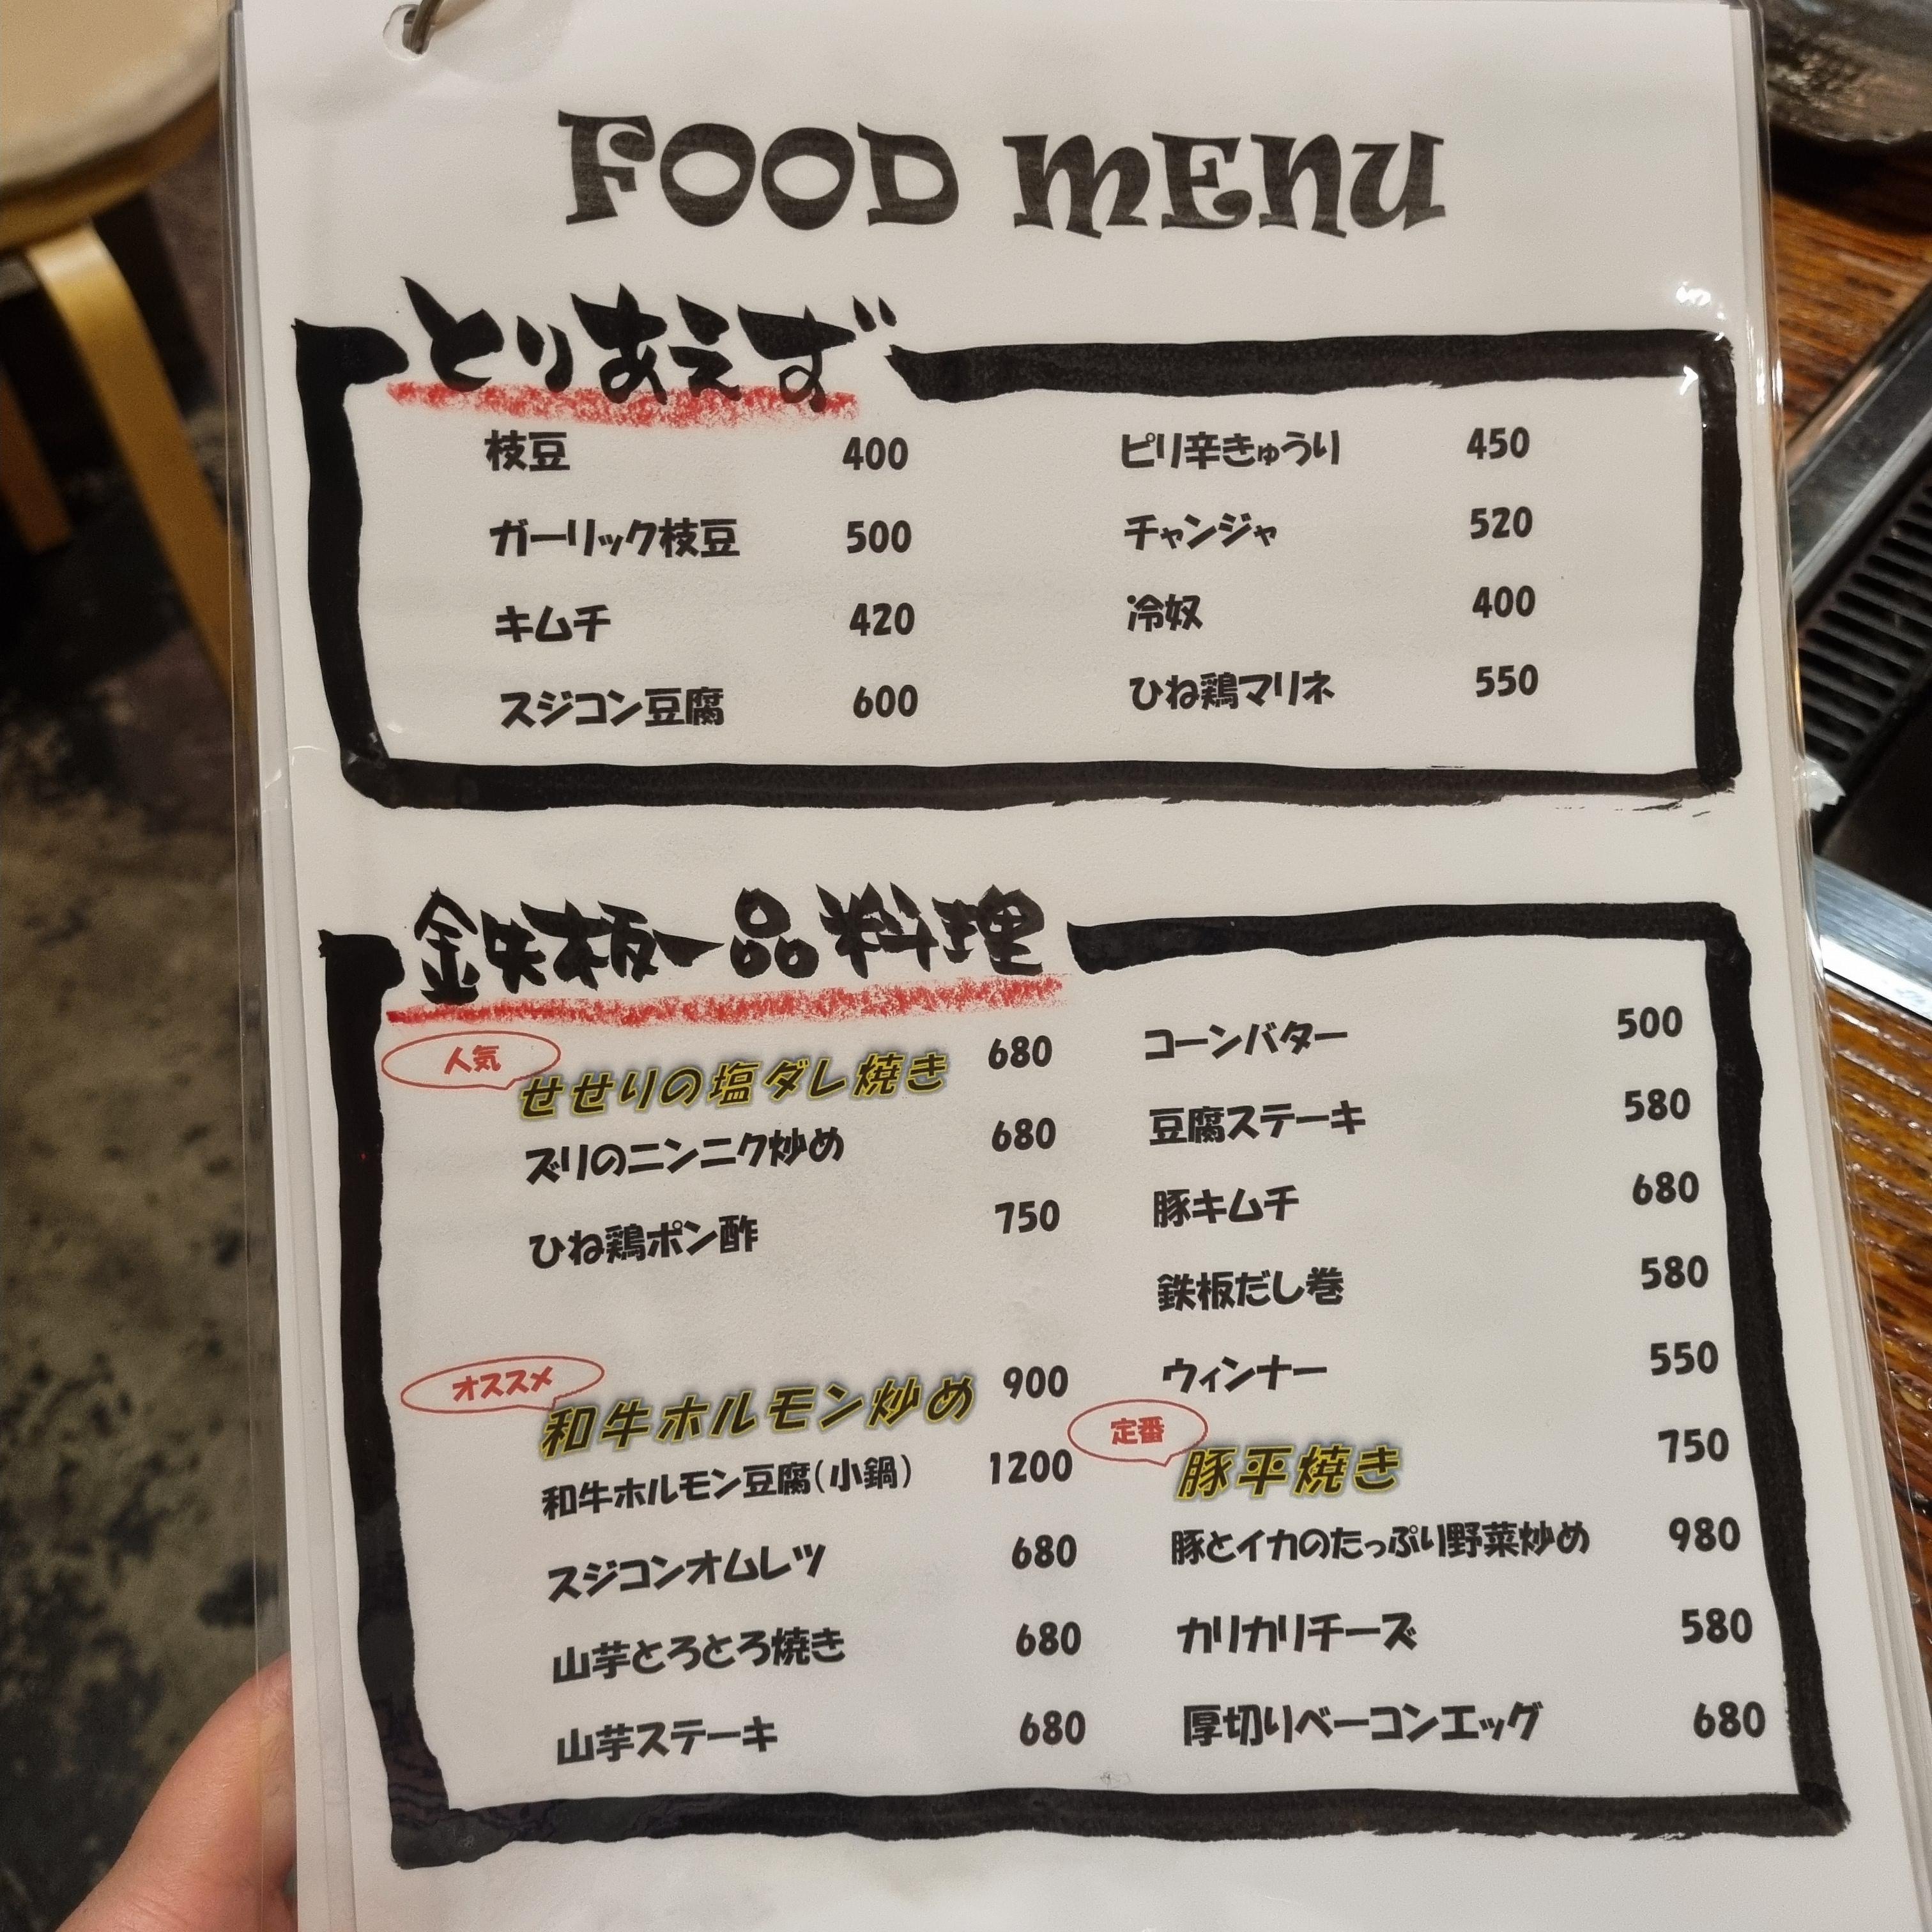 FOOD MENU
とりあえず
枝豆 400
ガーリック枝豆 500
キムチ 420
スジコン豆腐 600
ピリ辛きゅうり 450
チャンジャ 520
冷奴 400
ひね鶏マリネ 550
鉄板一品料理
人気
せせりの塩ダレ焼き 680
ズリのニンニク炒め 680
ひね鶏ポン酢 750
オススメ
和牛ホルモン炒め 900
和牛ホルモン豆腐(小鍋) 1200
スジコンオムレツ 680
山芋とろとろ焼き 680
山芋ステーキ 680
コーンバター 500
豆腐ステーキ 580
豚キムチ 680
鉄板だし巻 580
ウィンナー 550
定番
豚平焼き 750
豚とイカのたっぷり野菜炒め 980
カリカリチーズ 580
厚切りベーコンエッグ 680